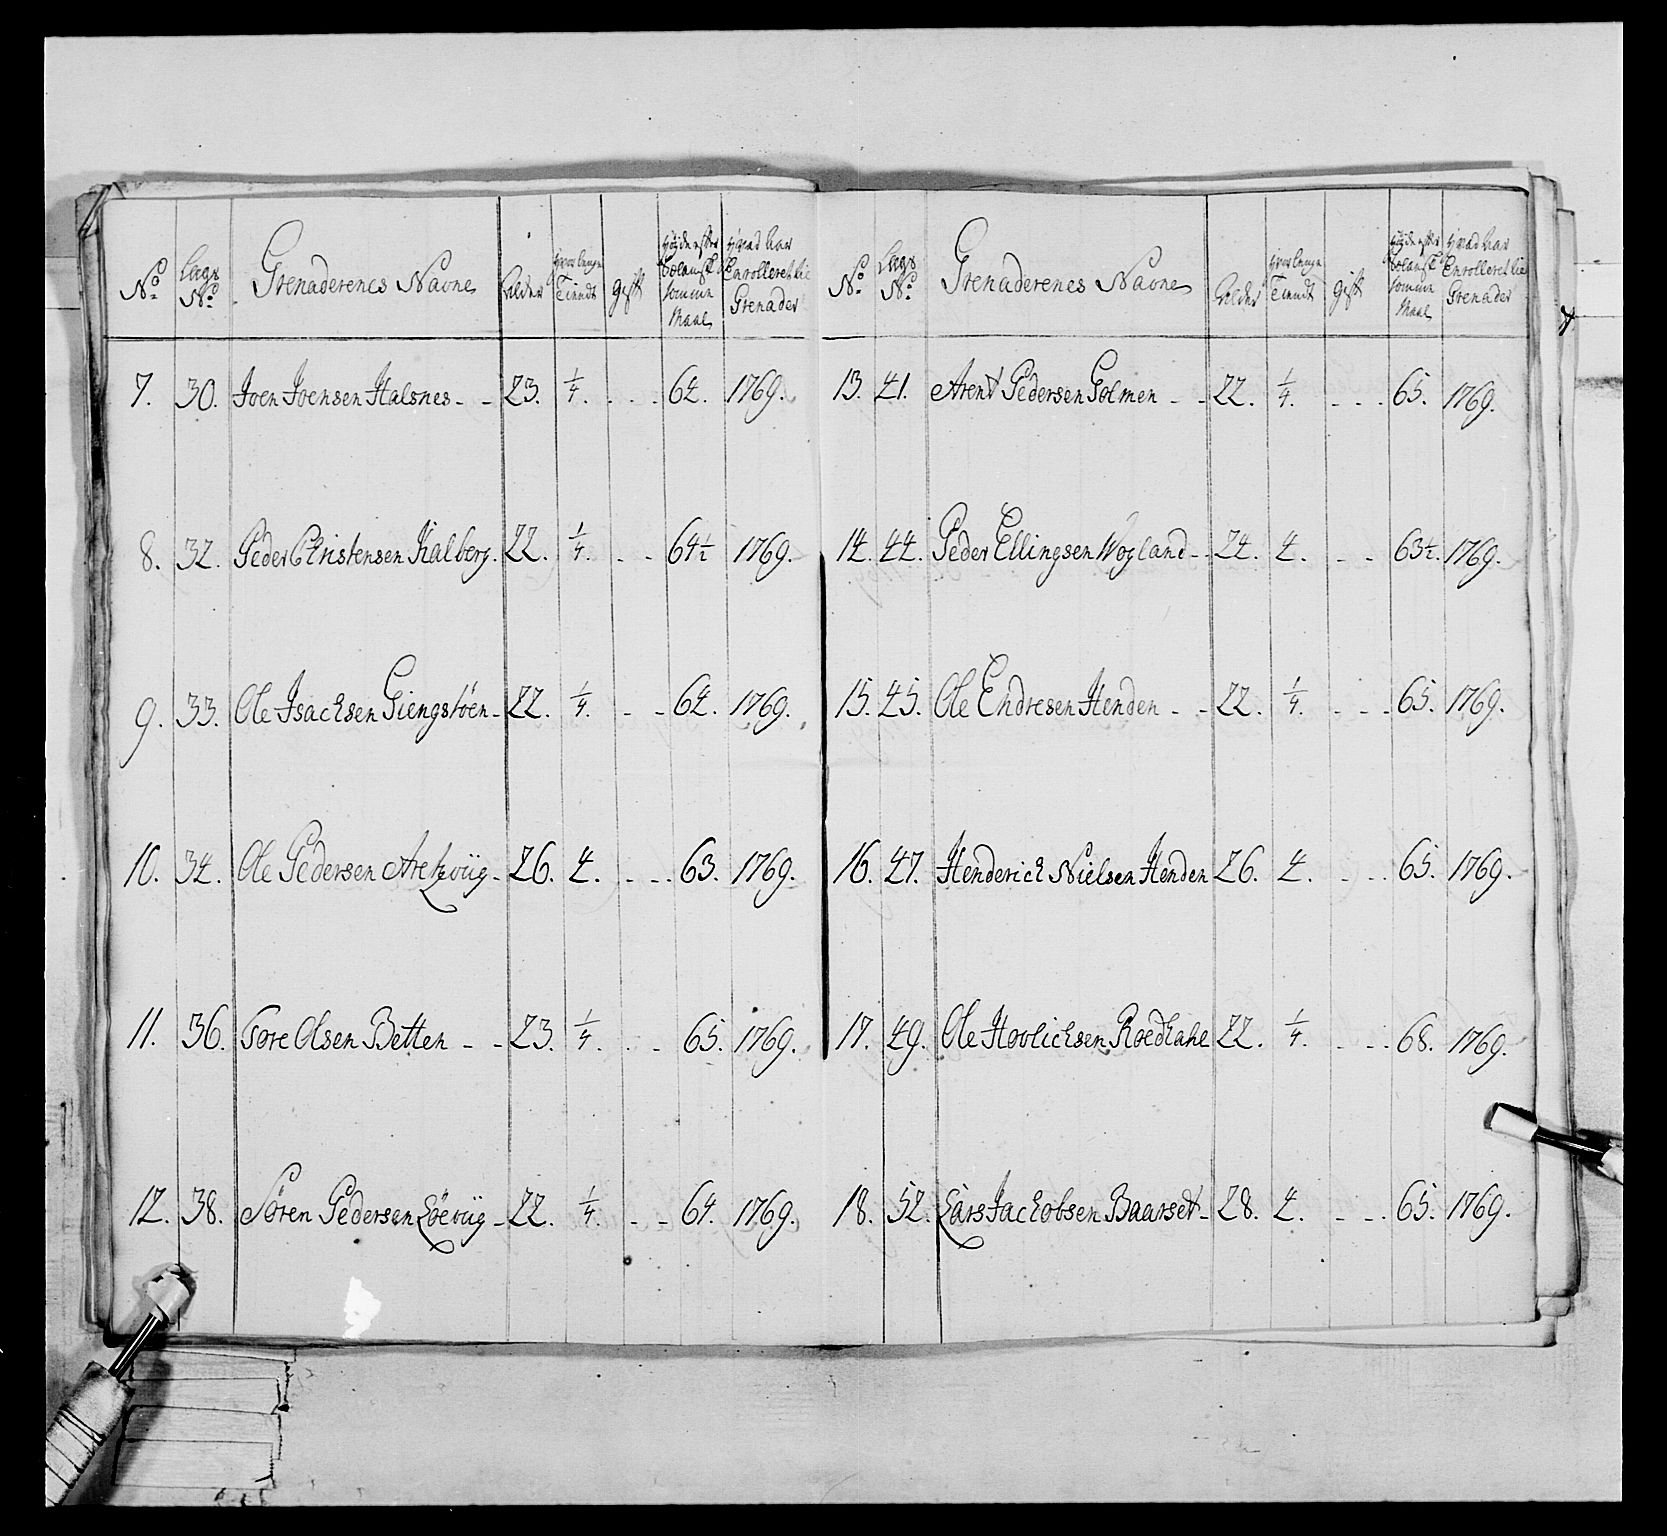 No. Lægs No. Grenaderenes Navne Alder hvor længe Tient Gift Høyde efter Tomme Maal hvad har Enrolleret Grenader
7. 30. Joen Joensen Halsnes - - 23. 1/4. - - - 64. 1769.
8. 32. Peder Christensen Kalberg. 22. 1/4. - - 64 1/2 1769.
9. 33. Ole Isachsen Giengstöen - 22. 1/4. - - 64. 1769.
10. 34. Ole Pedersen Arekviig - 26. 4. - - - 63. 1769.
11. 36. Tore Olsen Betten - - 23. 1/4. - - 65. 1769.
12. 38. Sören Pedersen Löeviig - 22. 1/4. - - 64. 1769.
No. Lægs No. Grenaderenes Navne Alder hvor længe Tient Gift Høyde efter Tomme Maal hvad har Enrolleret Grenader
13. 41. Arent Pedersen Golmen - - 22. 1/4. - - - 65. 1769.
14. 44. Peder Ellingsen Wogland - - 24. 4. - - 63 1/2. 1769.
15. 45. Ole Endresen Henden - - 22. 1/4. - - - 65. 1769.
16. 47. Henderich Nielsen Henden 26. 4. - - - 65. 1769.
17. 49. Ole Hovlichsen Roedkahl 22. 1/4. - - - 68. 1769.
18. 52. Lars Jachobsen Baarset - 28. 4. - - - 65. 1769.